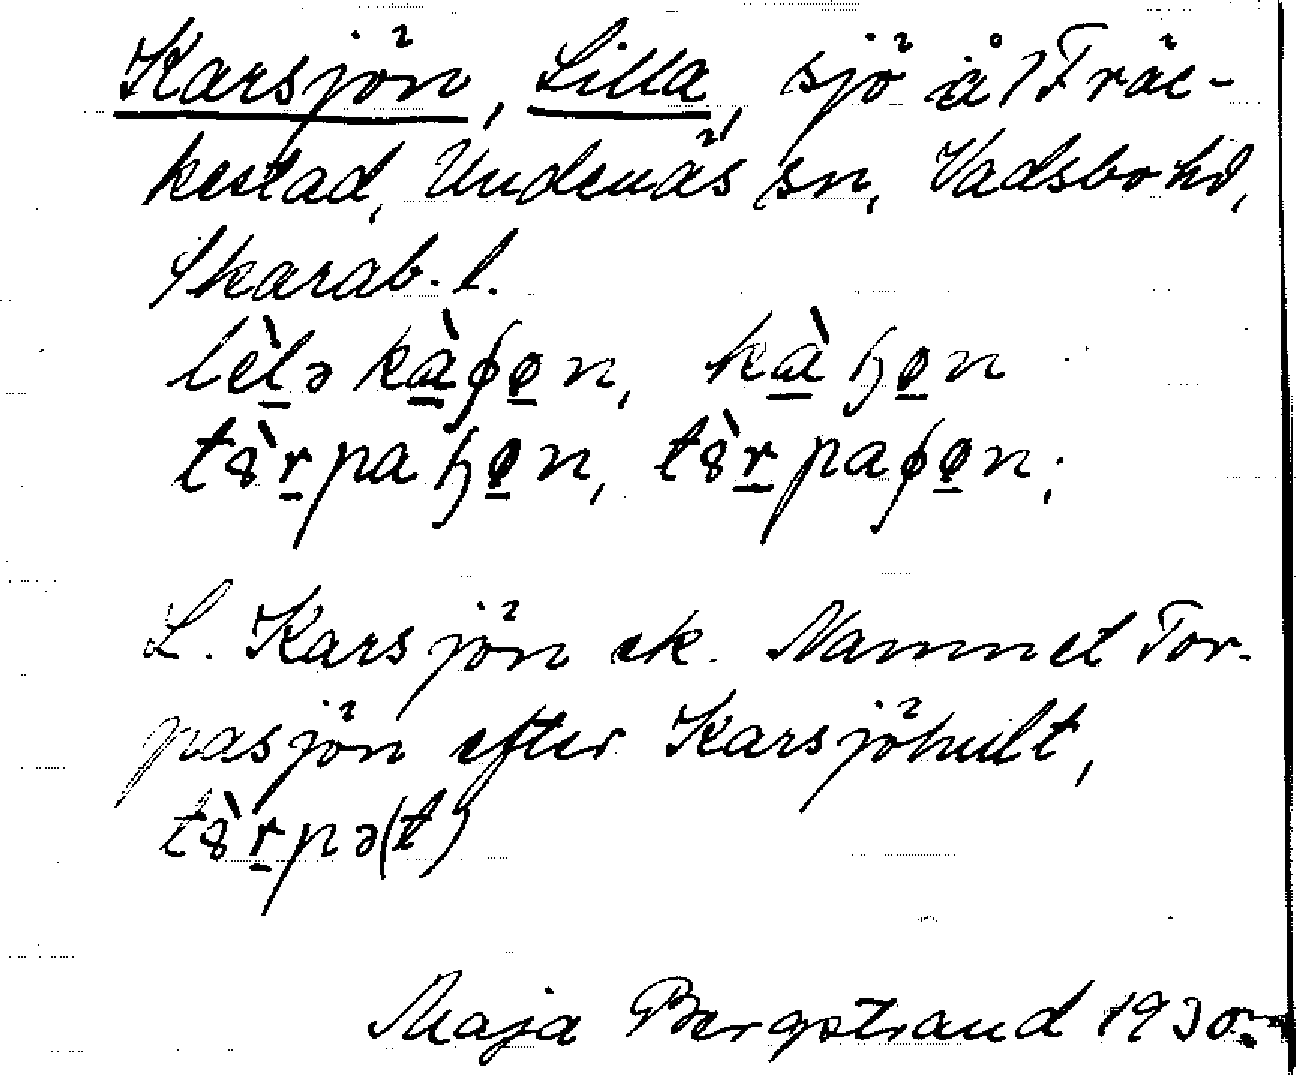 Karsjön, Lilla, sjö å Träc-
kestad, Undenäs sn, Vadsbo hd,
Skarab. l.
lèlə kàɧøn, kàɧøn
tòrpaɧøn, tòrpaɧøn;
L. Karsjön ek. Namnet Tor-
pasjön efter Karsjöhult,
tòrpə(t)
Maja Bergstrand 1930